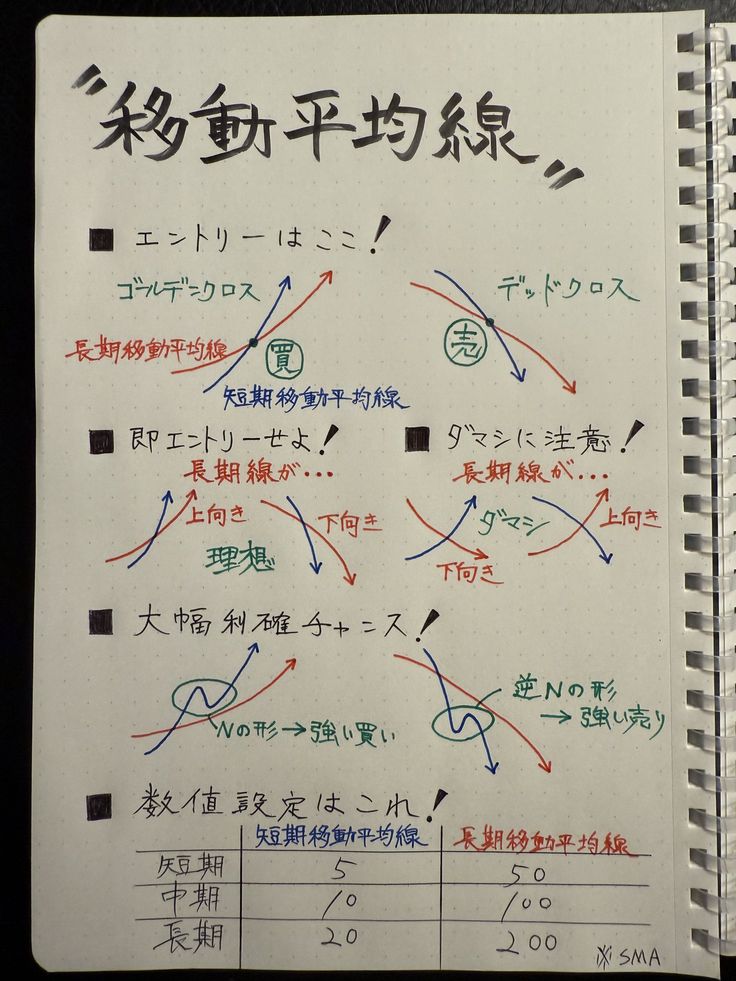 "移動平均線"
■ エントリーはここ!
ゴールデンクロス
長期移動平均線
買
短期移動平均線
デッドクロス
売
■ 即エントリーせよ!
長期線が…
上向き
下向き
理想
■ ダマシに注意!
長期線が…
ダマシ
下向き
上向き
■ 大幅利確チャンス!
Nの形→強い買い
逆Nの形
→強い売り
■ 数値設定はこれ!
短期移動平均線 長期移動平均線
短期 5 50
中期 10 100
長期 20 200
※SMA